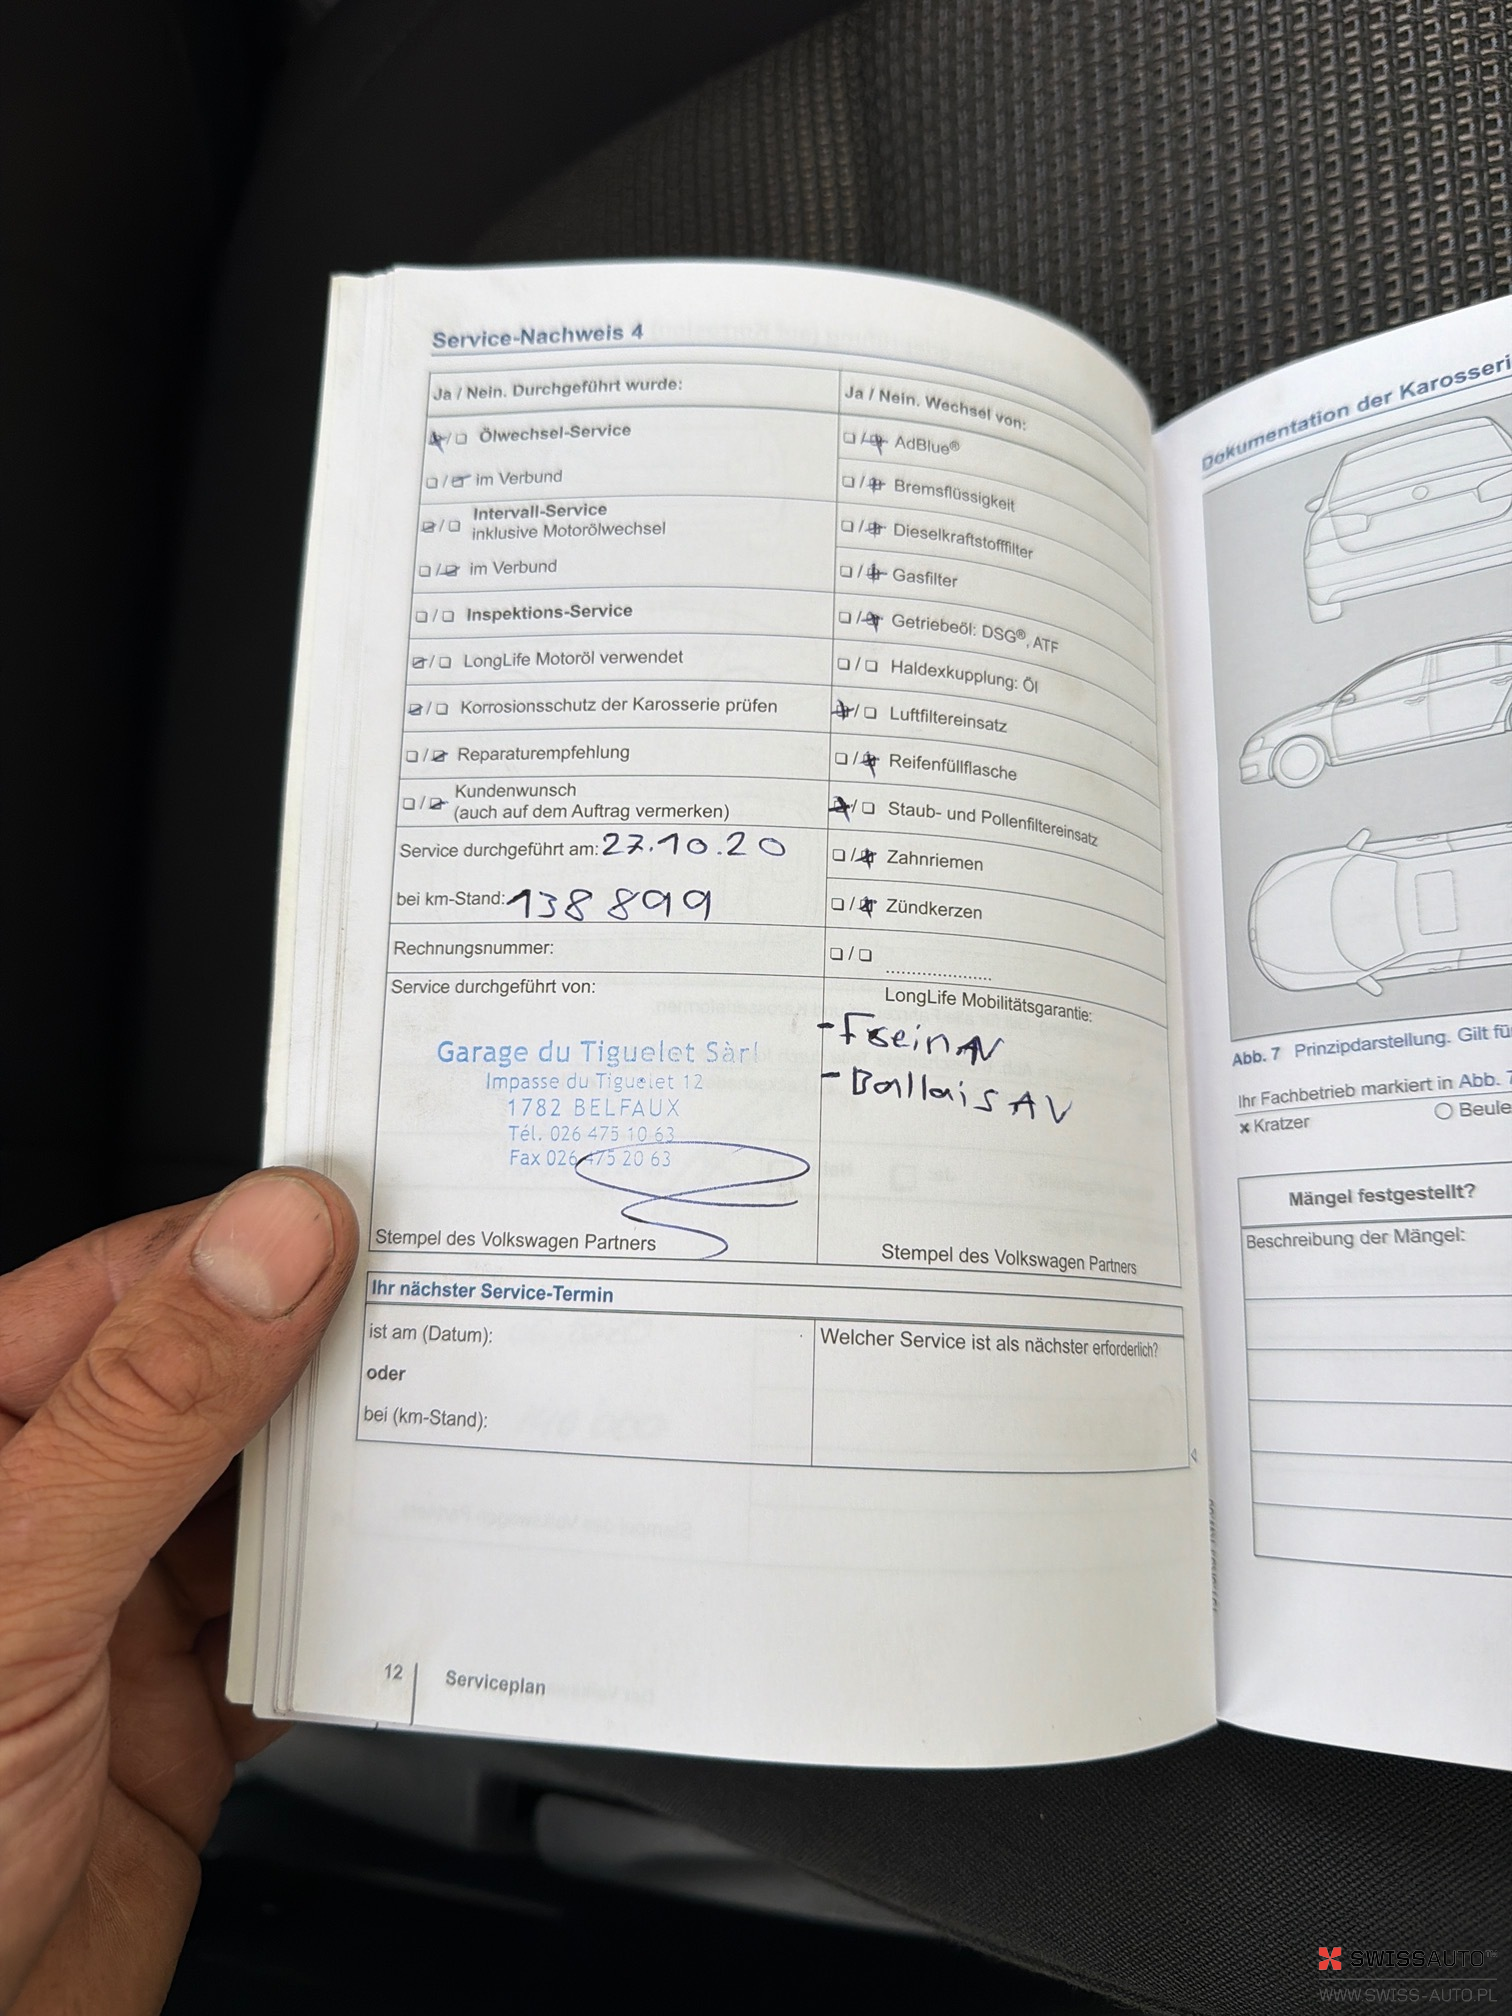 Service-Nachweis 4
Ja / Nein. Durchgeführt wurde:
Ölwechsel-Service
im Verbund
Intervall-Service
inklusive Motorölwechsel
im Verbund
Inspektions-Service
LongLife Motoröl verwendet
Korrosionsschutz der Karosserie prüfen
Reparaturempfehlung
Kundenwunsch
(auch auf dem Auftrag vermerken)
Service durchgeführt am: 27.10.20
bei km-Stand: 138 899
Rechnungsnummer:
Service durchgeführt von:
Garage du Tiguelet Sàrl
Impasse du Tiguelet 12
1782 BELFAUX
Tél. 026 475 10 63
Fax 026 475 20 63
Stempel des Volkswagen Partners
Ja / Nein. Wechsel von:
AdBlue®
Bremsflüssigkeit
Dieselkraftstofffilter
Gasfilter
Getriebeöl: DSG®, ATF
Haldexkupplung: Öl
Luftfiltereinsatz
Reifenfüllflasche
Staub- und Pollenfiltereinsatz
Zahnriemen
Zündkerzen
LongLife Mobilitätsgarantie:
- AV
- Ballais AV
Stempel des Volkswagen Partners
Ihr nächster Service-Termin
ist am (Datum):
oder
bei (km-Stand):
Welcher Service ist als nächster erforderlich?
12
Serviceplan
Dokumentation der Karosseri
Abb. 7 Prinzipdarstellung. Gilt fü
Ihr Fachbetrieb markiert in Abb. 7
x Kratzer
Beule
Mängel festgestellt?
Beschreibung der Mängel:
SWISSAUTO
WWW.SWISS-AUTO.PL